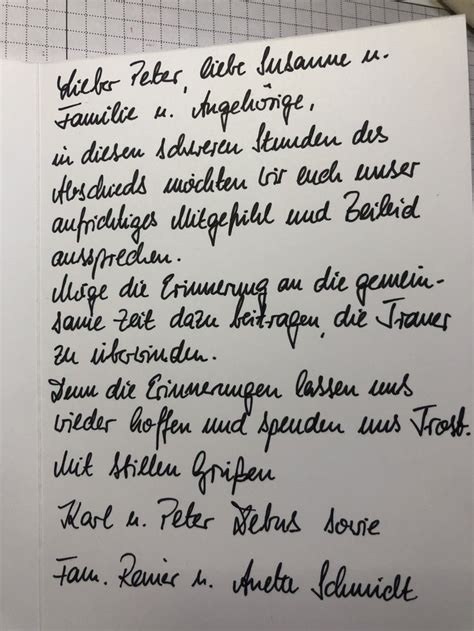 Lieber Peter, liebe Susanne u.
Familie u. Angehörige,
in diesen schweren Stunden des
Abschieds möchten wir euch unser
aufrichtiges Mitgefühl und Beileid
aussprechen.
Möge die Erinnerung an die gemein-
same Zeit dazu beitragen, die Trauer
zu überwinden.
Denn die Erinnerungen lassen uns
wieder hoffen und spenden uns Trost.
Mit stillen Grüßen
Karl u. Peter Debus sowie
Fam. Reiner u. Aneta Schmidt